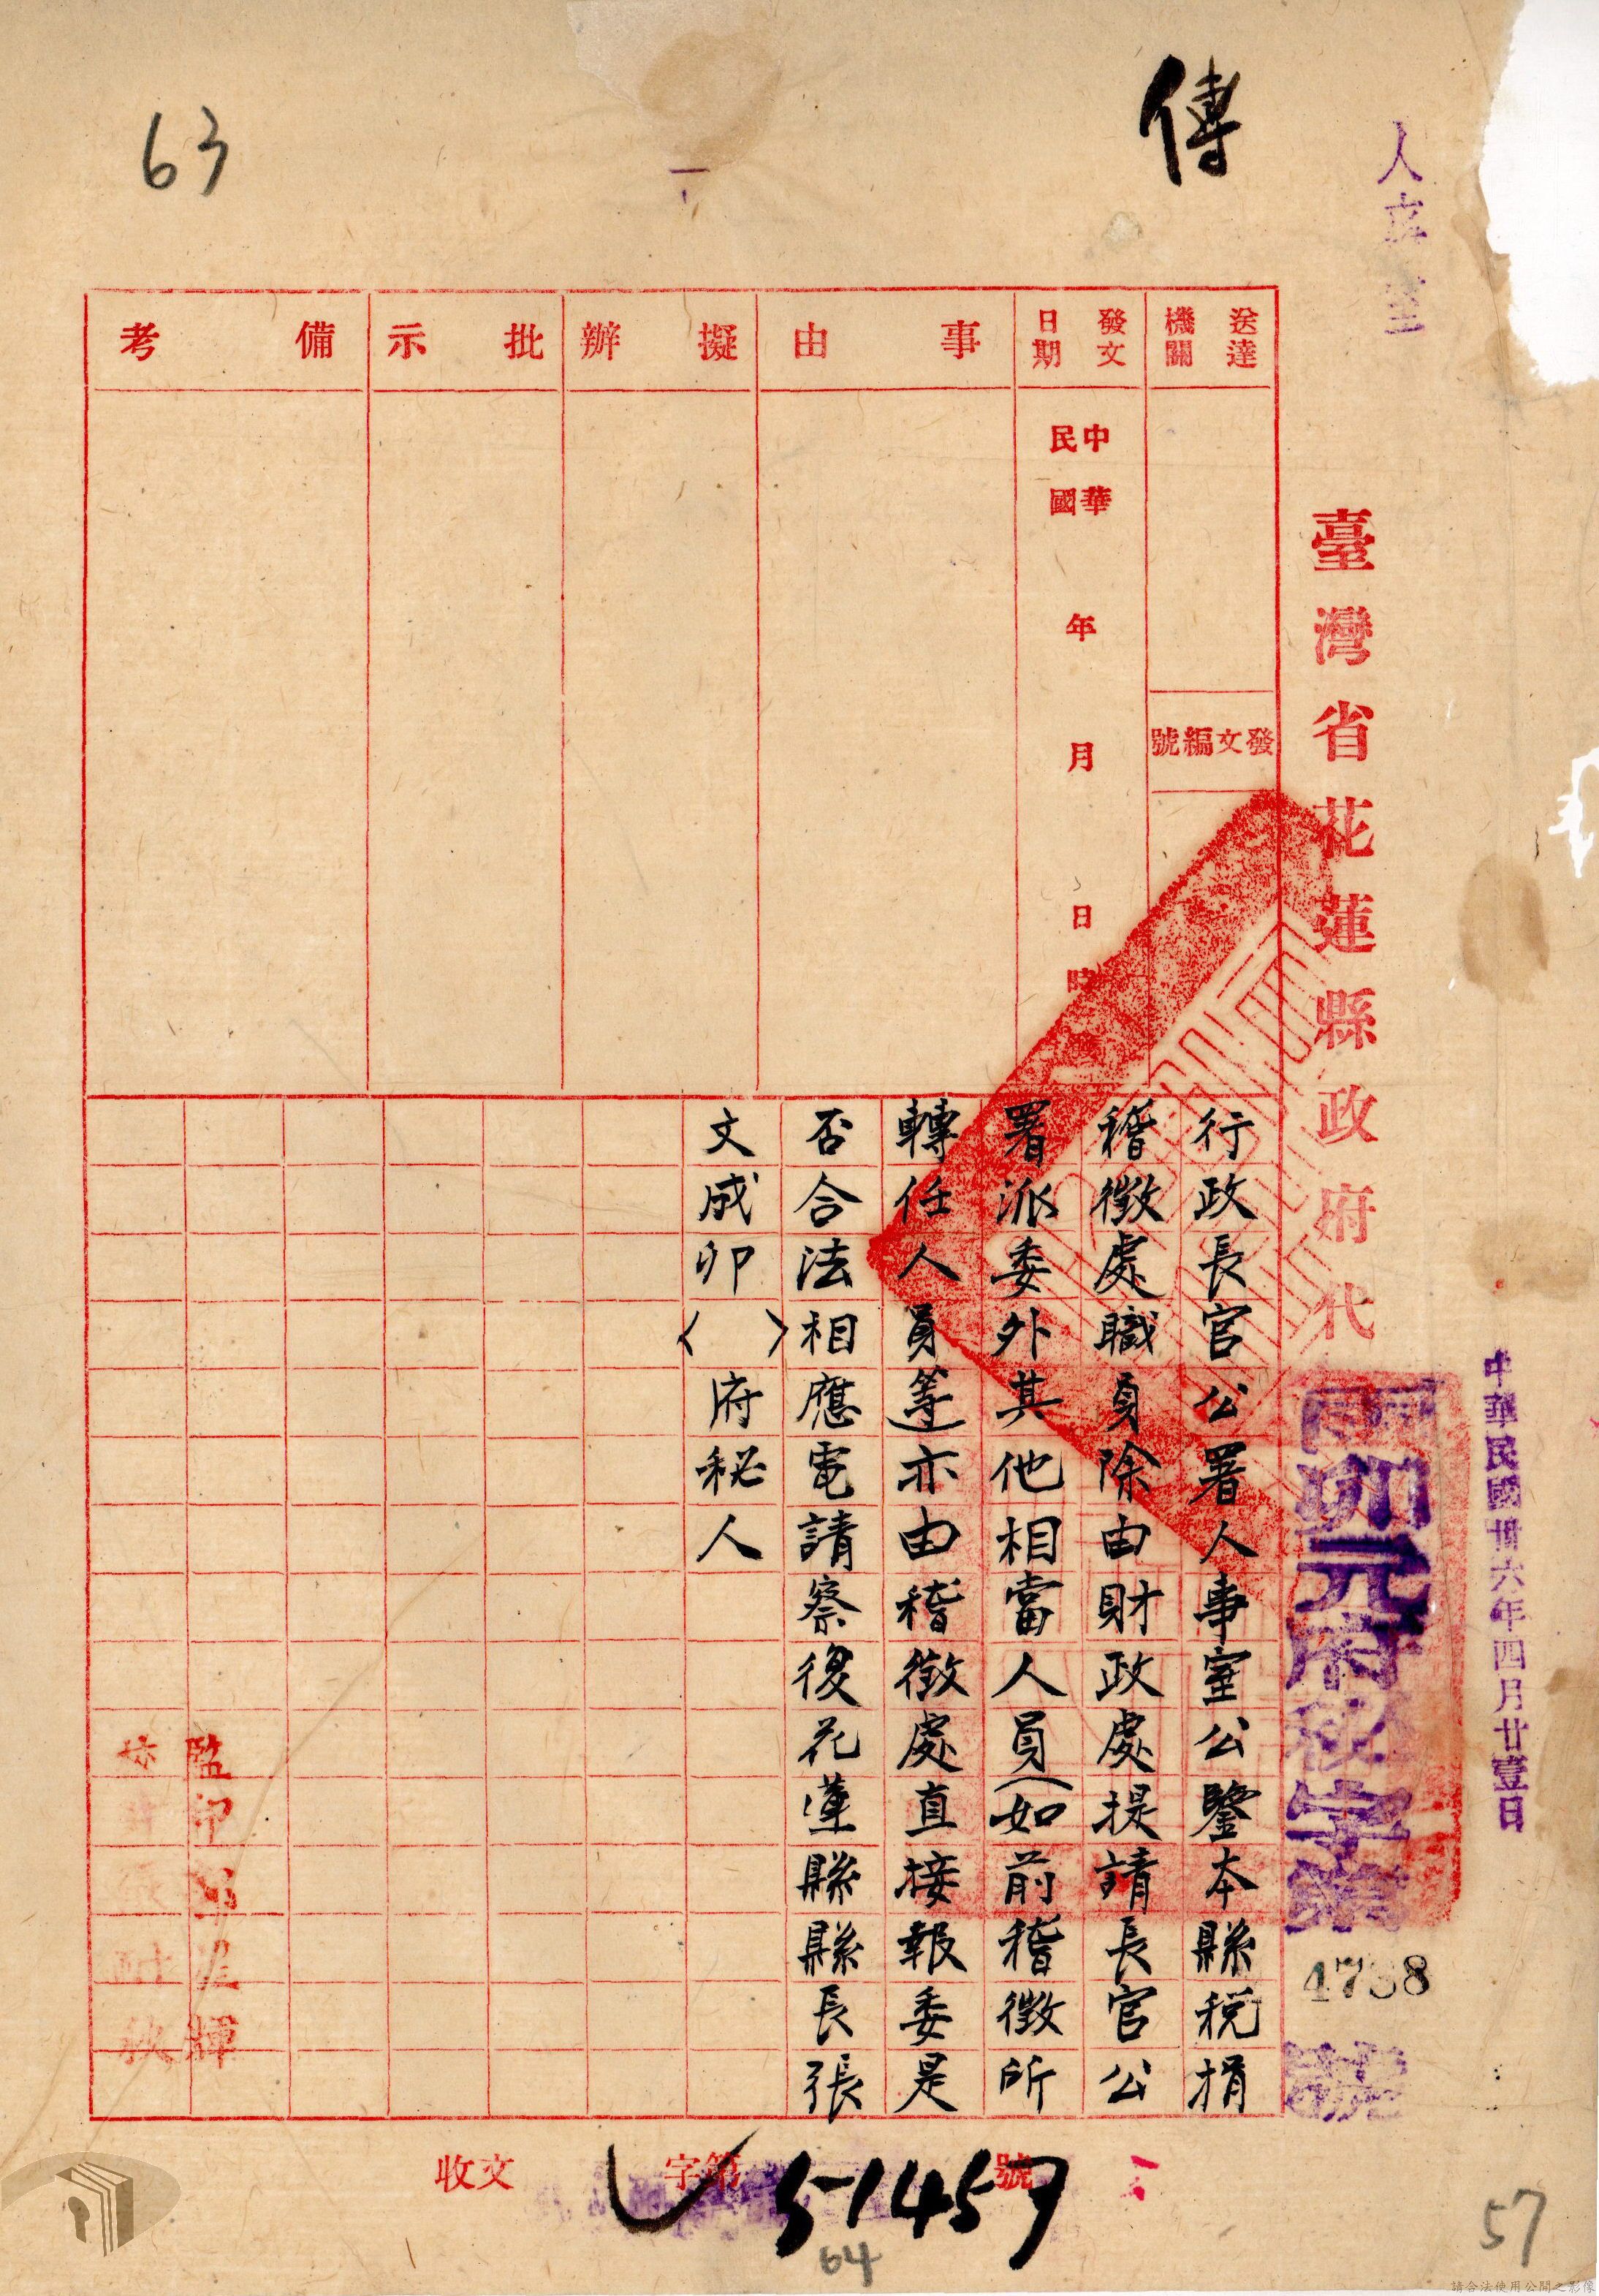 63
傳
人事室
臺灣省花蓮縣政府代
中華民國卅六年四月廿壹日
卯元府秘字第
4738
號
送達機關
發文編號
發文日期
中華民國 年 月 日 時
事由
擬辦
批示
備考
行政長官公署人事室公鑒本縣稅捐
稽徵處職員除由財政處提請長官公
署派委外其他相當人員(如前稽徵所
轉任人員等)亦由稽徵處直接報委是
否合法相應電請察復花蓮縣縣長張
文成卯( )府秘人
監印
輝
收文 字第 51459 號
64
57
請合法使用公開之影像